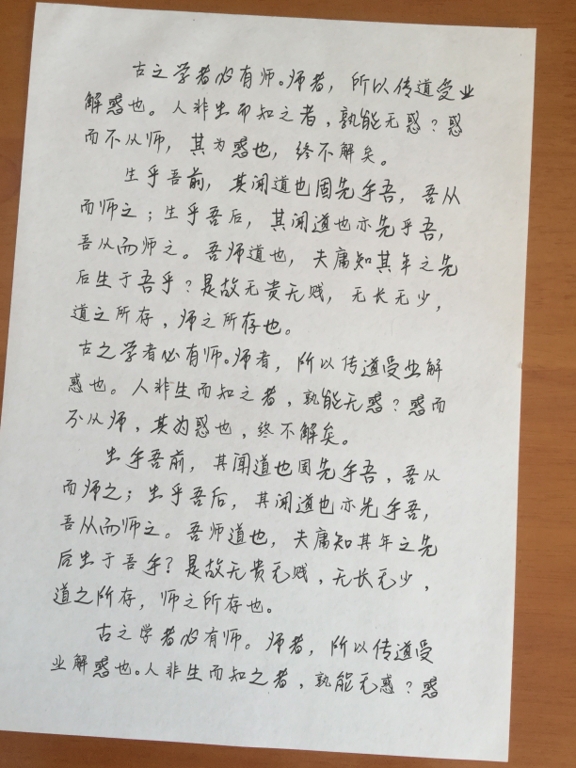 古之学者必有师。师者，所以传道受业
解惑也。人非生而知之者，孰能无惑？惑
而不从师，其为惑也，终不解矣。
生乎吾前，其闻道也固先乎吾，吾从
而师之；生乎吾后，其闻道也亦先乎吾，
吾从而师之。吾师道也，夫庸知其年之先
后生于吾乎？是故无贵无贱，无长无少，
道之所存，师之所存也。
古之学者必有师。师者，所以传道受业解
惑也。人非生而知之者，孰能无惑？惑而
不从师，其为惑也，终不解矣。
生乎吾前，其闻道也固先乎吾，吾从
而师之；生乎吾后，其闻道也亦先乎吾，
吾从而师之。吾师道也，夫庸知其年之先
后生于吾乎？是故无贵无贱，无长无少，
道之所存，师之所存也。
古之学者必有师。师者，所以传道受
业解惑也。人非生而知之者，孰能无惑？惑